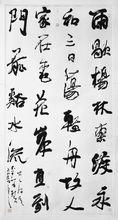 雨歇楊林東渡永
和三日蕩輕舟故人
家在桃花岸直到
門前谿水流